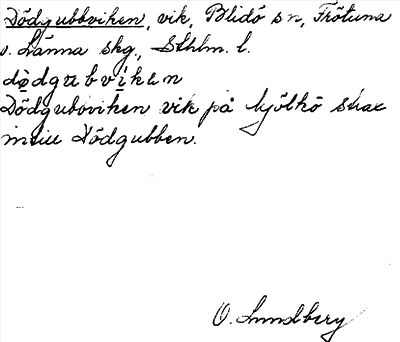 Dödgubbviken, vik, Blidö sn, Frötuna
o. Länna skg., Sthlm. l.
dødgubvikən
Dödgubbviken vik på Mjölkö strax
intill Dödgubben.
O. Lundberg